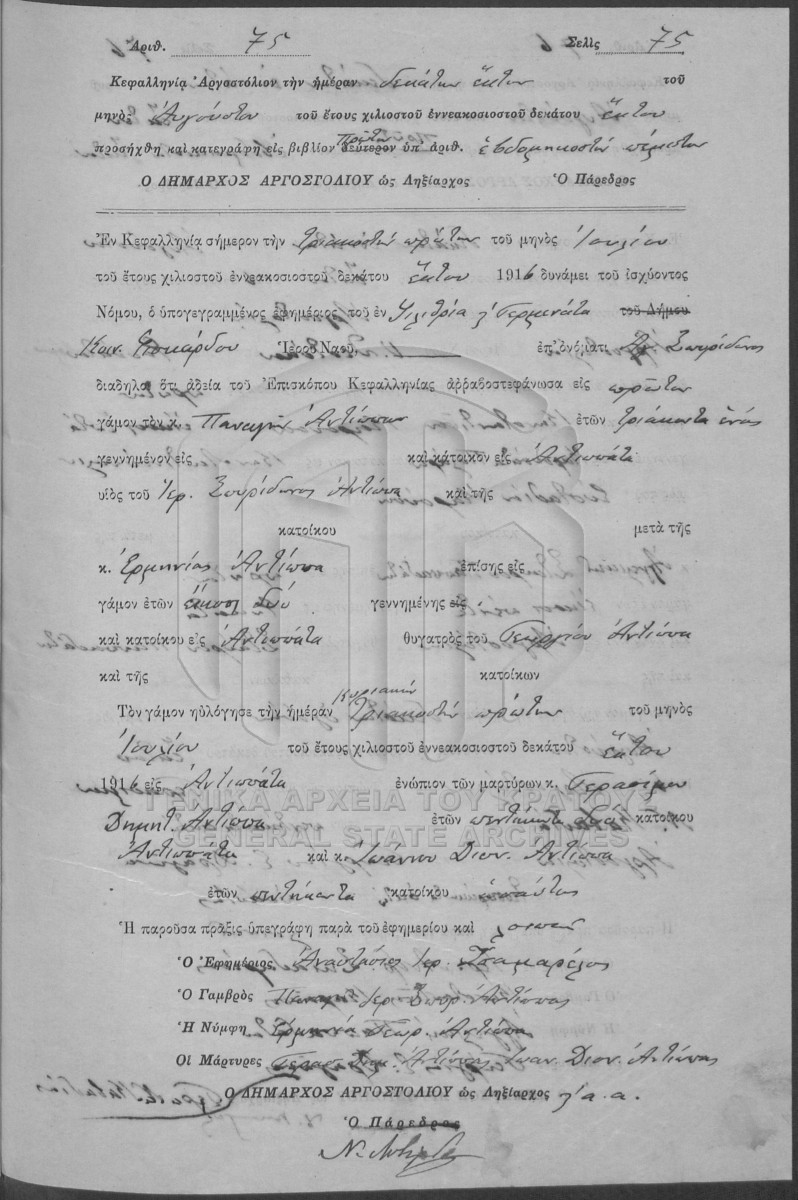 Ἀριθ. 75 Σελὶς 75
Κεφαλληνίᾳ Ἀργοστόλιον τὴν ἡμέραν δεκάτην ἕκτην τοῦ
μηνὸς Αὐγούστου τοῦ ἔτους χιλιοστοῦ ἐννεακοσιοστοῦ δεκάτου ἕκτου
προσήχθη καὶ κατεγράφη εἰς βιβλίον δεύτερον πρῶτον ὑπ' ἀριθ. ἑβδομηκοστὸν πέμπτον
Ὁ ΔΗΜΑΡΧΟΣ ΑΡΓΟΣΤΟΛΙΟΥ ὡς Ληξίαρχος Ὁ Πάρεδρος
Ἐν Κεφαλληνίᾳ σήμερον τὴν τριακοστὴν πρώτην τοῦ μηνὸς Ἰουλίου
τοῦ ἔτους χιλιοστοῦ ἐννεακοσιοστοῦ δεκάτου ἕκτου 1916 δυνάμει τοῦ ἰσχύοντος
Νόμου, ὁ ὑπογεγραμμένος ἐφημέριος τοῦ ἐν τοῦ Δήμου
Κοιν. Ἱεροῦ Ναοῦ, ἐπ' ὀνόματι Ἁγ. Σπυρίδωνος
διαδηλῶ ὅτι ἀδείᾳ τοῦ Ἐπισκόπου Κεφαλληνίας ἀρραβοστεφάνωσα εἰς πρῶτον
γάμον τὸν κ. Παναγῆν Ἀντίππαν ἐτῶν τριάκοντα ἑνὸς
γεννημένον εἰς καὶ κάτοικον εἰς Ἀντιππάτα
υἱὸς τοῦ Ἱερ. Σπυρίδωνος Ἀντίππα καὶ τῆς
κατοίκου μετὰ τῆς
κ. Ἑρμηνίας Ἀντίππα ἐπίσης εἰς
γάμον ἐτῶν εἴκοσι δύο γεννημένης εἰς
καὶ κατοίκου εἰς Ἀντιππάτα θυγατρὸς τοῦ Γεωργίου Ἀντίππα
καὶ τῆς κατοίκων
Τὸν γάμον ηὐλόγησε τὴν ἡμέραν Κυριακὴν τριακοστὴν πρώτην τοῦ μηνὸς
Ἰουλίου τοῦ ἔτους χιλιοστοῦ ἐννεακοσιοστοῦ δεκάτου ἕκτου
1916 εἰς Ἀντιππάτα ἐνώπιον τῶν μαρτύρων κ. Γερασίμου
Δημητ. Ἀντίππα ἐτῶν πεντήκοντα κατοίκου
Ἀντιππάτα καὶ κ. Ἰωάννου Διον. Ἀντίππα
ἐτῶν πεντήκοντα κατοίκου
Ἡ παροῦσα πρᾶξις ὑπεγράφη παρὰ τοῦ ἐφημερίου καὶ λοιπῶν
Ὁ Ἐφημέριος Ἀναστάσιος Ἱερ. Τσαμαρέλος
Ὁ Γαμβρὸς Παναγῆς Ἱερ. Σπυρ. Ἀντίππας
Ἡ Νύμφη Ἑρμηνία Γεωρ. Ἀντίππα
Οἱ Μάρτυρες Γερασ. Δημ. Ἀντίππας, Ἰωαν. Διον. Ἀντίππας
Ὁ ΔΗΜΑΡΧΟΣ ΑΡΓΟΣΤΟΛΙΟΥ ὡς Ληξίαρχος α.α.
Ὁ Πάρεδρος
ΓΕΝΙΚΑ ΑΡΧΕΙΑ ΤΟΥ ΚΡΑΤΟΥΣ
GENERAL STATE ARCHIVES